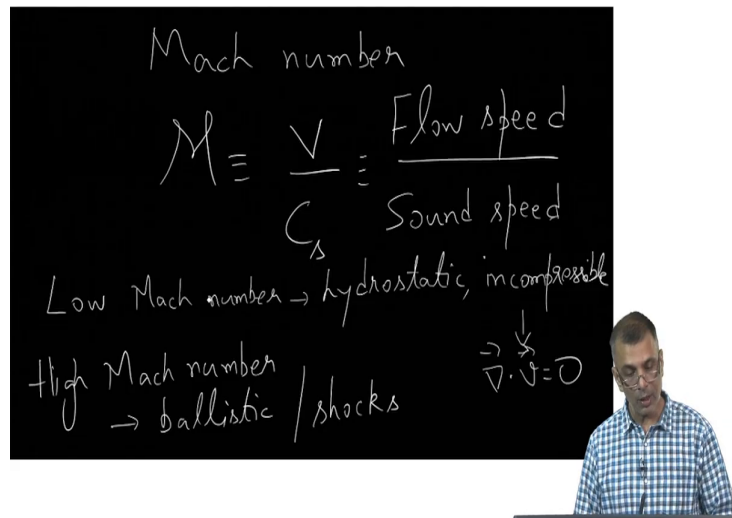 Mach number
M ≡ V / C_s ≡ Flow speed / Sound speed
Low Mach number → hydrostatic, incompressible
↓
∇⃗ · v⃗ = 0
High Mach number
→ ballistic / shocks